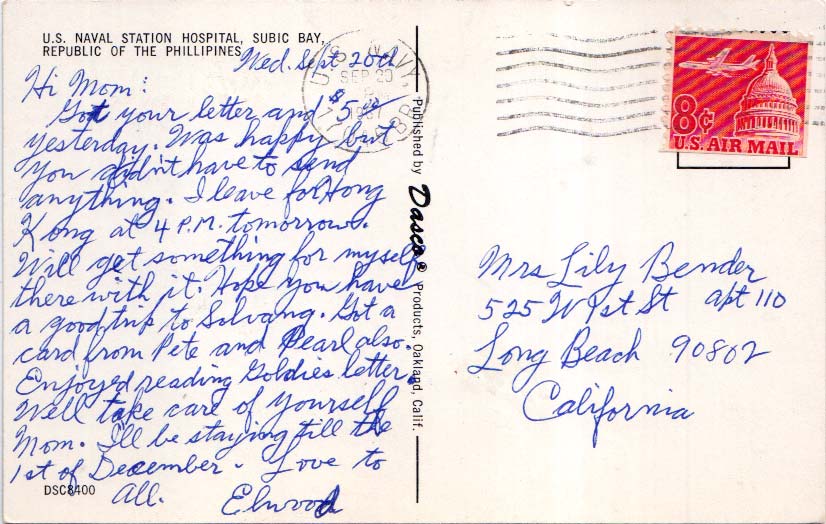 U.S. NAVAL STATION HOSPITAL, SUBIC BAY,
REPUBLIC OF THE PHILLIPINES
Wed. Sept 20th
Hi Mom:
Got your letter and $5.00
yesterday. Was happy but
you didn't have to send
anything. I leave for Hong
Kong at 4 P.M. tomorrow.
Will get something for myself
there with it. Hope you have
a good trip to Solvang. Got a
card from Pete and Pearl also.
Enjoyed reading Goldies letter.
Well take care of yourself
Mom. I'll be staying till the
1st of December. Love to
All. Elwood
DSC8400
Published by Dasco® Products, Oakland, Calif.
U.S. NAVY
SEP 20
8¢
U.S. AIR MAIL
Mrs Lily Bender
525 W 1st St apt 110
Long Beach 90802
California